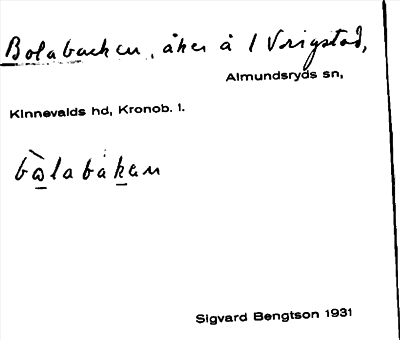 Bolabacken, åker å 1 Vrigstad,
Almundsryds sn,
Kinnevalds hd, Kronob. l.
bòlabákan
Sigvard Bengtson 1931